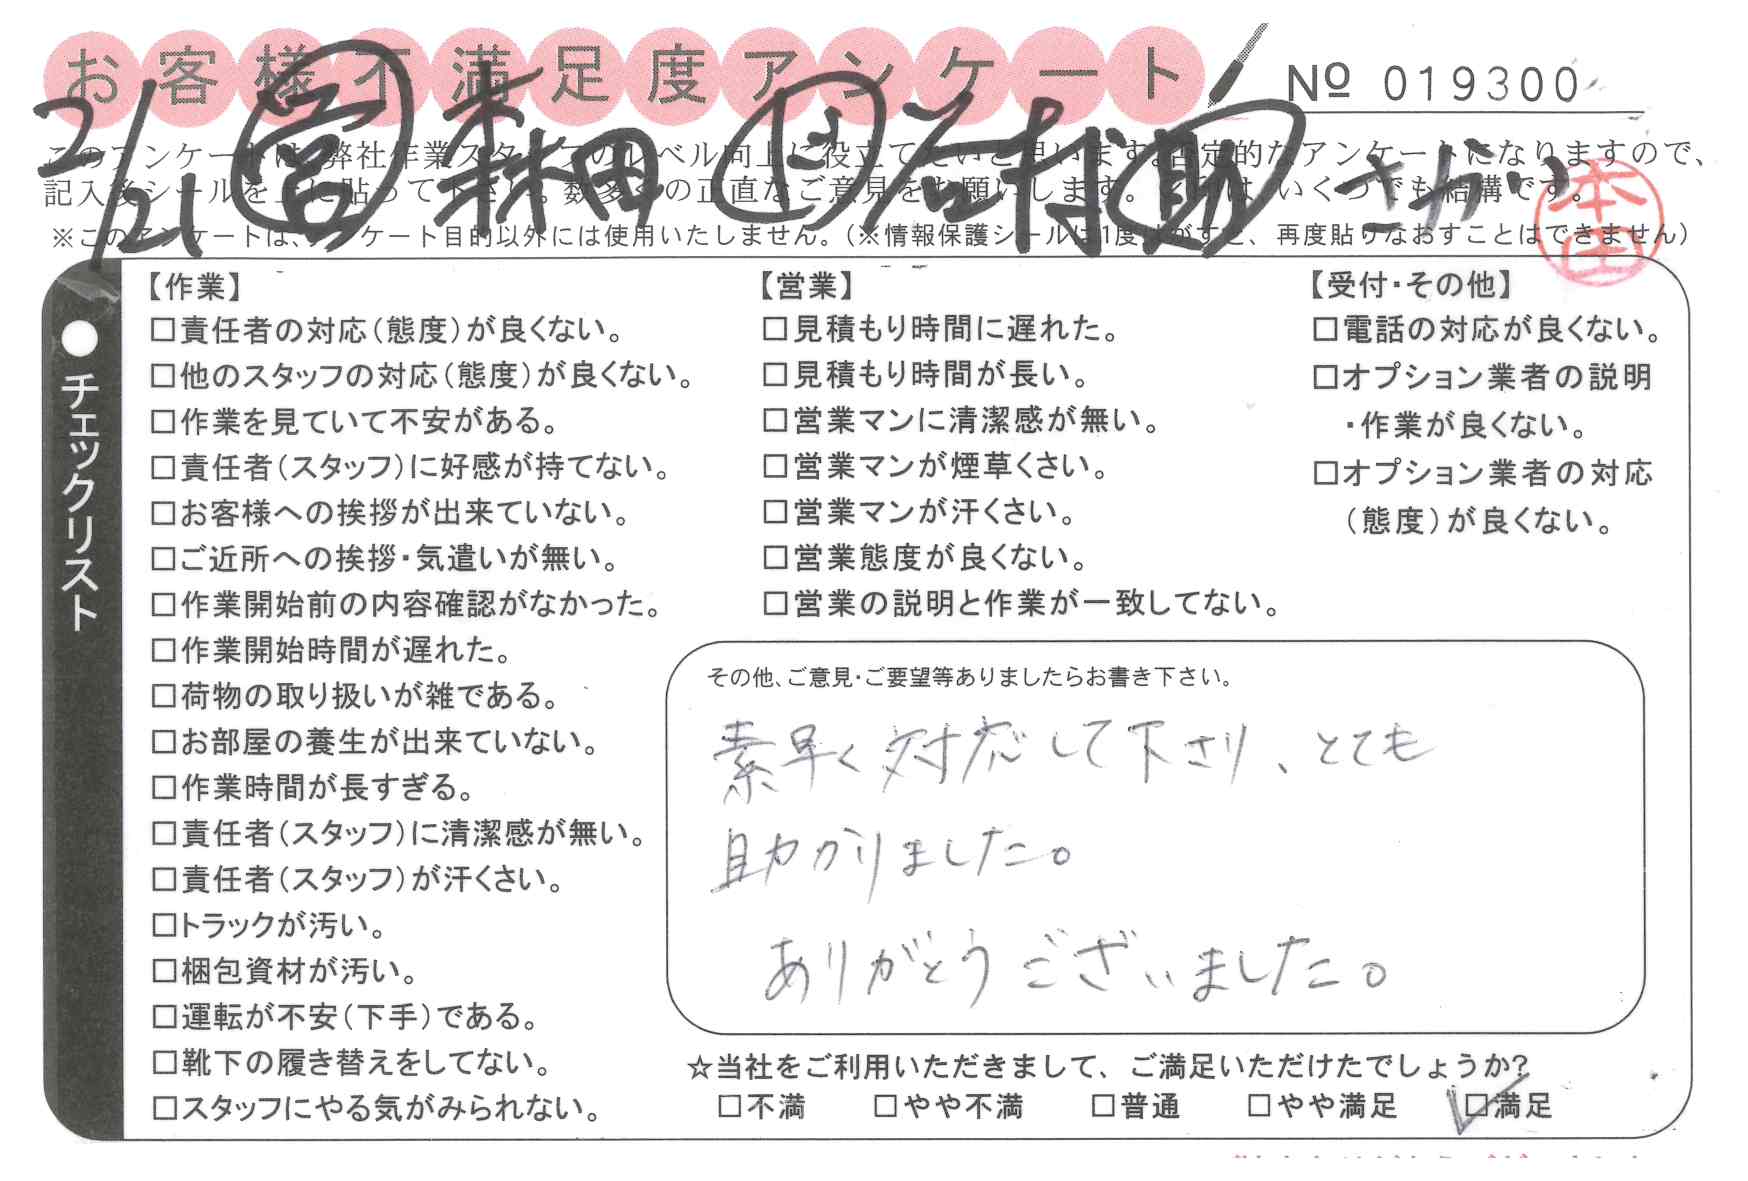 お客様不満足度アンケート
№ 019300
2/21 営 森田 助 さがい
本田
このアンケートは、弊社作業スタッフのレベル向上に役立てたいと思います。否定的なアンケートになりますので、
記入後シールを上に貼って下さい。数多くの正直なご意見をお願いします。 いくつでも結構です。
※このアンケートは、アンケート目的以外には使用いたしません。(※情報保護シールは1度はがすと、再度貼りなおすことはできません)
●チェックリスト
【作業】
□責任者の対応(態度)が良くない。
□他のスタッフの対応(態度)が良くない。
□作業を見ていて不安がある。
□責任者(スタッフ)に好感が持てない。
□お客様への挨拶が出来ていない。
□ご近所への挨拶・気遣いが無い。
□作業開始前の内容確認がなかった。
□作業開始時間が遅れた。
□荷物の取り扱いが雑である。
□お部屋の養生が出来ていない。
□作業時間が長すぎる。
□責任者(スタッフ)に清潔感が無い。
□責任者(スタッフ)が汗くさい。
□トラックが汚い。
□梱包資材が汚い。
□運転が不安(下手)である。
□靴下の履き替えをしてない。
□スタッフにやる気がみられない。
【営業】
□見積もり時間に遅れた。
□見積もり時間が長い。
□営業マンに清潔感が無い。
□営業マンが煙草くさい。
□営業マンが汗くさい。
□営業態度が良くない。
□営業の説明と作業が一致してない。
【受付・その他】
□電話の対応が良くない。
□オプション業者の説明
・作業が良くない。
□オプション業者の対応
(態度)が良くない。
その他、ご意見・ご要望等ありましたらお書き下さい。
素早く対応して下さり、とても
助かりました。
ありがとうございました。
☆当社をご利用いただきまして、ご満足いただけたでしょうか?
□不満 □やや不満 □普通 □やや満足 ☑満足